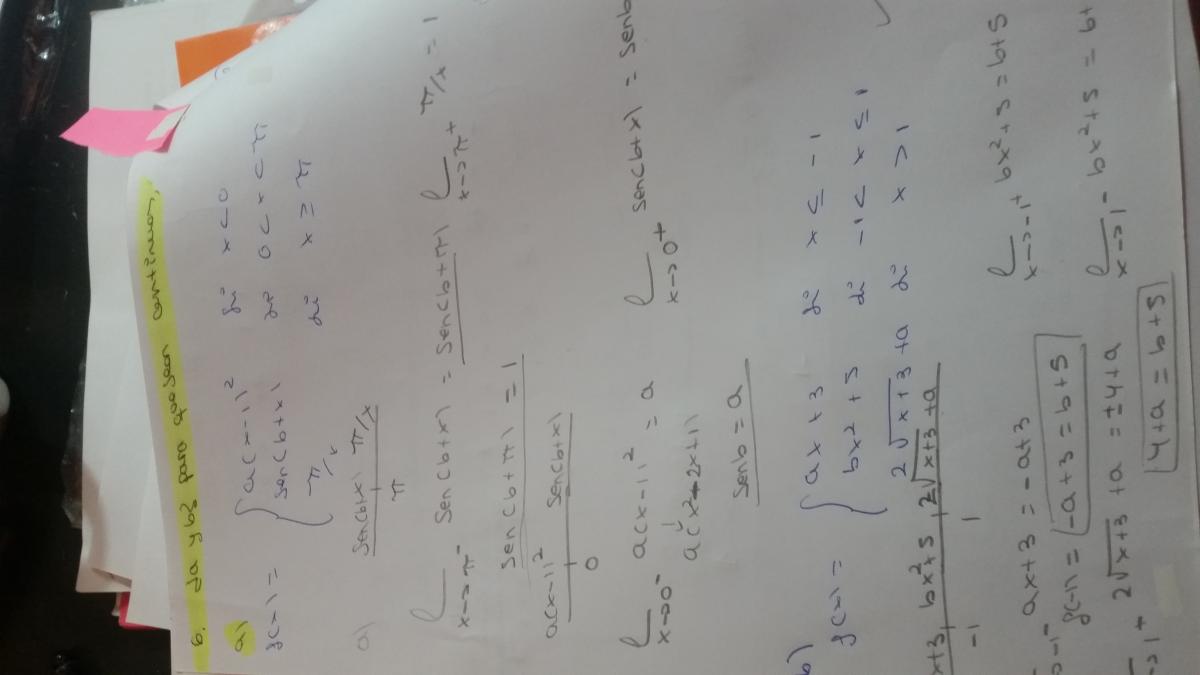 6. ¿a y b? para que sean continuas,
a)
f(x) = { a(x-1)² si x<0
sen(b+x) si 0<x<π
π/x si x≥π
a) sen(b+x) | π/x
π
x→π⁻ sen(b+x) = sen(b+π) x→π⁺ π/x = 1
sen(b+π) = 1
a(x-1)² | sen(b+x)
0
x→0⁻ a(x-1)² = a x→0⁺ sen(b+x) = sen b
a(x²-2x+1)
sen b = a
b)
f(x) = { ax+3 si x≤-1
bx²+5 si -1<x≤1
2√x+3 +a si x>1
x+3 | bx²+5 | 2√x+3 +a
-1 1
→-1⁻ ax+3 = -a+3 x→-1⁺ bx²+5 = b+5
f(-1) = -a+3 = b+5
→1⁺ 2√x+3 +a = ±4+a x→1⁻ bx²+5 = b+
4+a = b+5